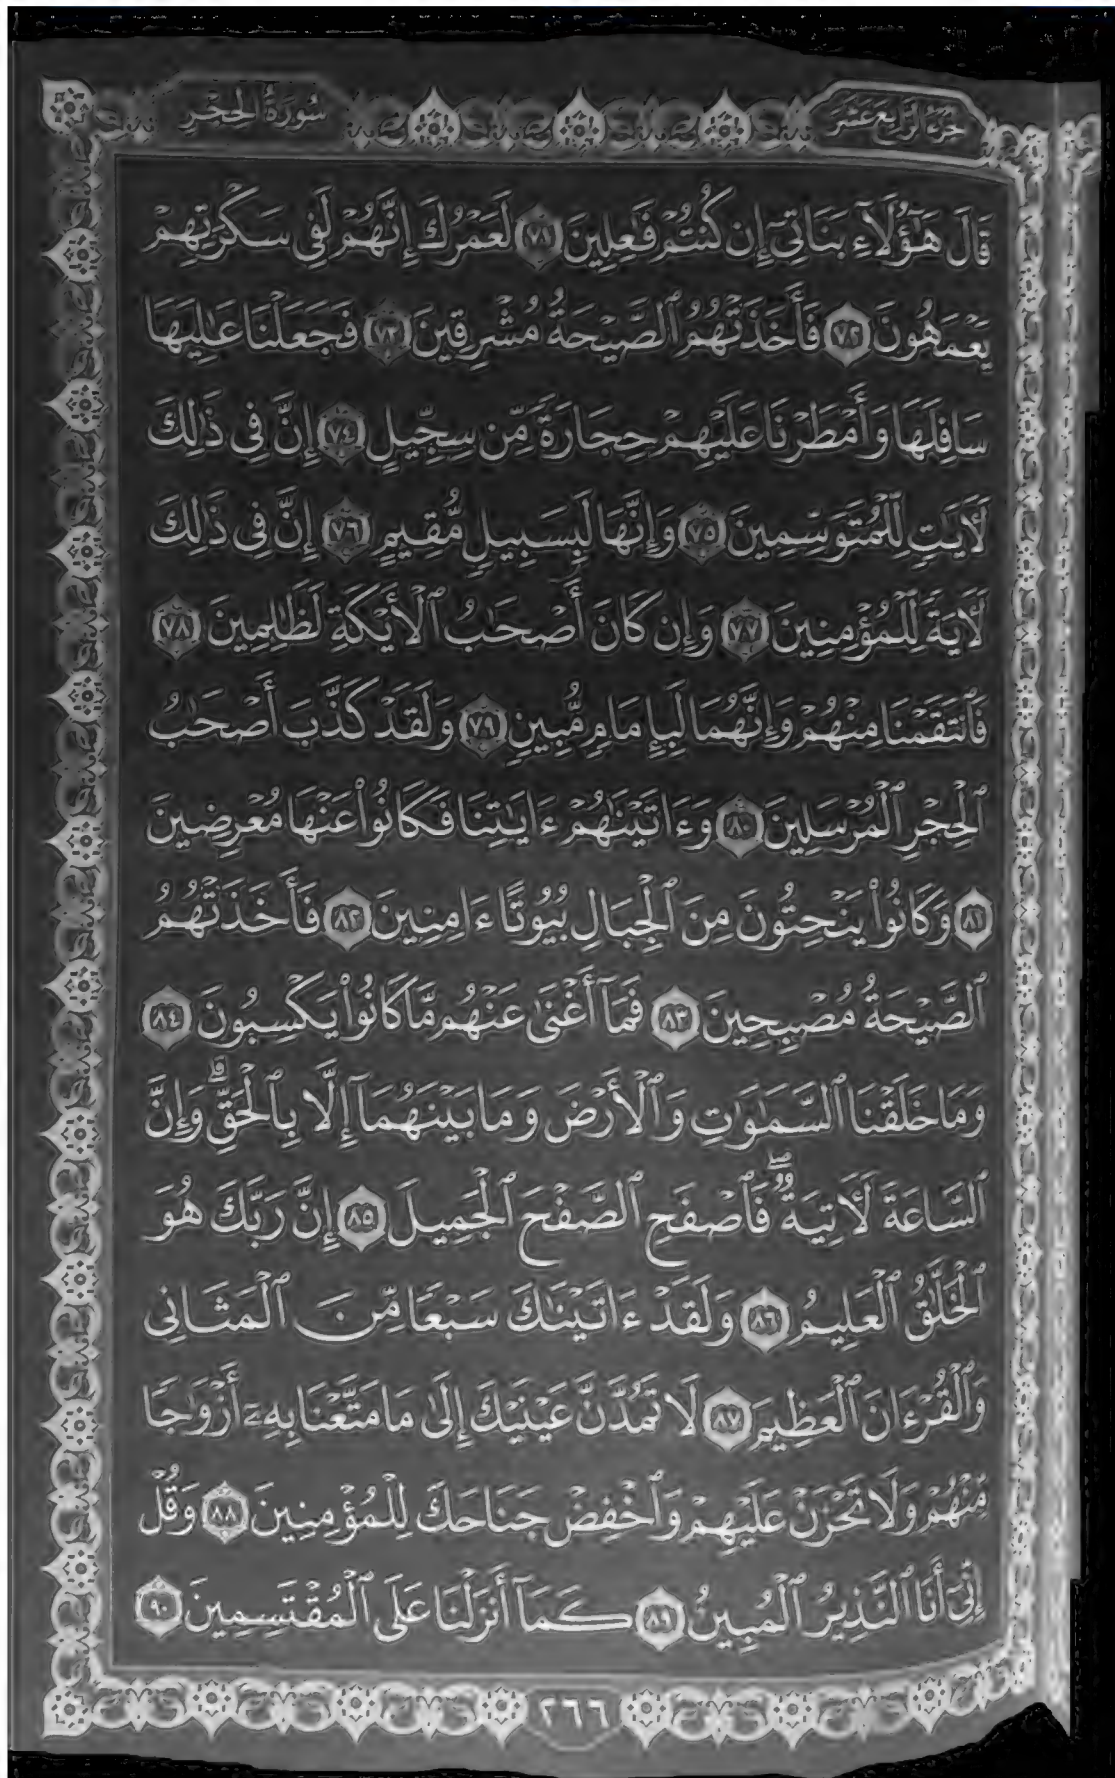 سُورَةُ الْحِجْرِ
الجُزْءُ الرَّابِعَ عَشَرَ
قَالَ هَٰٓؤُلَآءِ بَنَاتِىٓ إِن كُنتُمْ فَٰعِلِينَ ٧١ لَعَمْرُكَ إِنَّهُمْ لَفِى سَكْرَتِهِمْ
يَعْمَهُونَ ٧٢ فَأَخَذَتْهُمُ ٱلصَّيْحَةُ مُشْرِقِينَ ٧٣ فَجَعَلْنَا عَٰلِيَهَا
سَافِلَهَا وَأَمْطَرْنَا عَلَيْهِمْ حِجَارَةً مِّن سِجِّيلٍ ٧٤ إِنَّ فِى ذَٰلِكَ
لَءَايَٰتٍ لِّلْمُتَوَسِّمِينَ ٧٥ وَإِنَّهَا لَبِسَبِيلٍ مُّقِيمٍ ٧٦ إِنَّ فِى ذَٰلِكَ
لَءَايَةً لِّلْمُؤْمِنِينَ ٧٧ وَإِن كَانَ أَصْحَٰبُ ٱلْأَيْكَةِ لَظَٰلِمِينَ ٧٨
فَٱنتَقَمْنَا مِنْهُمْ وَإِنَّهُمَا لَبِإِمَامٍ مُّبِينٍ ٧٩ وَلَقَدْ كَذَّبَ أَصْحَٰبُ
ٱلْحِجْرِ ٱلْمُرْسَلِينَ ٨٠ وَءَاتَيْنَٰهُمْ ءَايَٰتِنَا فَكَانُوا۟ عَنْهَا مُعْرِضِينَ
٨١ وَكَانُوا۟ يَنْحِتُونَ مِنَ ٱلْجِبَالِ بُيُوتًا ءَامِنِينَ ٨٢ فَأَخَذَتْهُمُ
ٱلصَّيْحَةُ مُصْبِحِينَ ٨٣ فَمَآ أَغْنَىٰ عَنْهُم مَّا كَانُوا۟ يَكْسِبُونَ ٨٤
وَمَا خَلَقْنَا ٱلسَّمَٰوَٰتِ وَٱلْأَرْضَ وَمَا بَيْنَهُمَآ إِلَّا بِٱلْحَقِّ ۗ وَإِنَّ
ٱلسَّاعَةَ لَءَاتِيَةٌ ۖ فَٱصْفَحِ ٱلصَّفْحَ ٱلْجَمِيلَ ٨٥ إِنَّ رَبَّكَ هُوَ
ٱلْخَلَّٰقُ ٱلْعَلِيمُ ٨٦ وَلَقَدْ ءَاتَيْنَٰكَ سَبْعًا مِّنَ ٱلْمَثَانِى
وَٱلْقُرْءَانَ ٱلْعَظِيمَ ٨٧ لَا تَمُدَّنَّ عَيْنَيْكَ إِلَىٰ مَا مَتَّعْنَا بِهِۦٓ أَزْوَٰجًا
مِّنْهُمْ وَلَا تَحْزَنْ عَلَيْهِمْ وَٱخْفِضْ جَنَاحَكَ لِلْمُؤْمِنِينَ ٨٨ وَقُلْ
إِنِّىٓ أَنَا ٱلنَّذِيرُ ٱلْمُبِينُ ٨٩ كَمَآ أَنزَلْنَا عَلَى ٱلْمُقْتَسِمِينَ ٩٠
٢٦٦